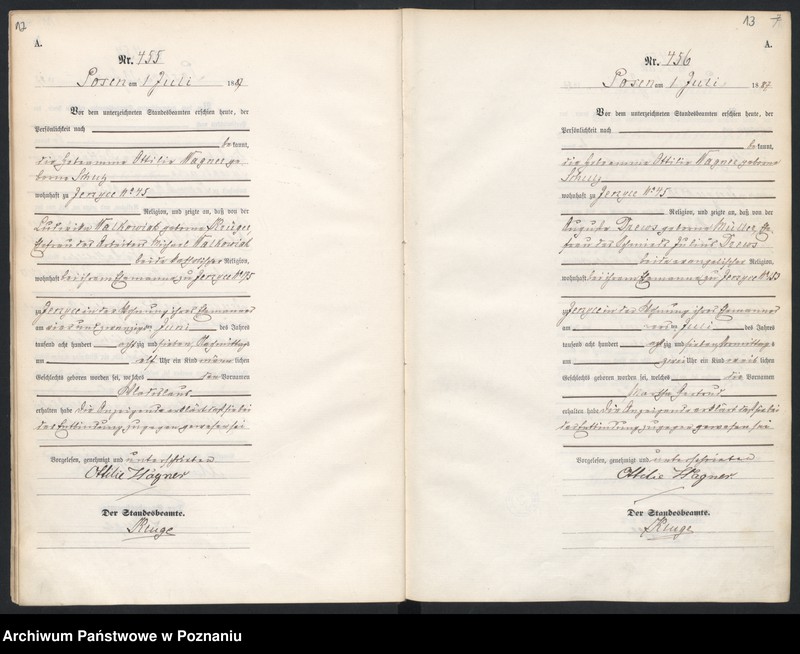 12
A.
Nr. 455
Posen am 1 Juli 1887
Vor dem unterzeichneten Standesbeamten erschien heute, der
Persönlichkeit nach
bekannt,
die Hebeamme Ottilie Wagner ge
borne Schulz
wohnhaft zu Jerzyce No 45
Religion, und zeigte an, daß von der
Ludwika Walkowiak geborne
Ehefrau des Arbeiters Michael Walkowiak
beide katholischer Religion,
wohnhaft bei ihrem Ehemanne zu Jerzyce
zu Jerzyce in der Wohnung ihres Ehemannes
am Juni des Jahres
tausend acht hundert achtzig und sieben Nachmittags
um elf Uhr ein Kind männlichen
Geschlechts geboren worden sei, welches den Vornamen
Wladislaus
erhalten habe. Die Anzeigende erklärt daß sie bei
der Entbindung zugegen gewesen sei
Vorgelesen, genehmigt und unterschrieben
Ottilie Wagner
Der Standesbeamte.
Kluge
13
A.
Nr. 456
Posen am 1 Juli 1887
Vor dem unterzeichneten Standesbeamten erschien heute, der
Persönlichkeit nach
bekannt,
die Hebeamme Ottilie Wagner geborne
Schulz
wohnhaft zu Jerzyce No 45
Religion, und zeigte an, daß von der
Auguste Drews geborne Müller, Ehe
frau des Schmieds Julius Drews
beide evangelischer Religion,
wohnhaft bei ihrem Ehemanne zu Jerzyce
zu Jerzyce in der Wohnung ihres Ehemannes
am Juli des Jahres
tausend acht hundert achtzig und sieben Vormittags
um zwei Uhr ein Kind weiblichen
Geschlechts geboren worden sei, welches die Vornamen
Martha Gertrud
erhalten habe. Die Anzeigende erklärt daß sie bei
der Entbindung zugegen gewesen sei
Vorgelesen, genehmigt und unterschrieben
Ottilie Wagner
Der Standesbeamte.
Kluge
Archiwum Państwowe w Poznaniu